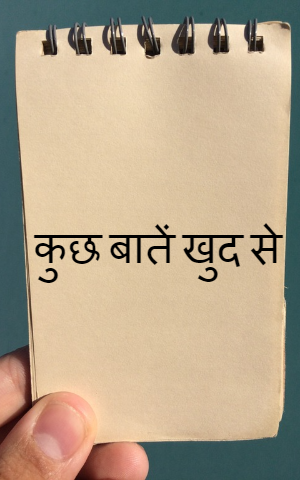 कुछ बातें खुद से